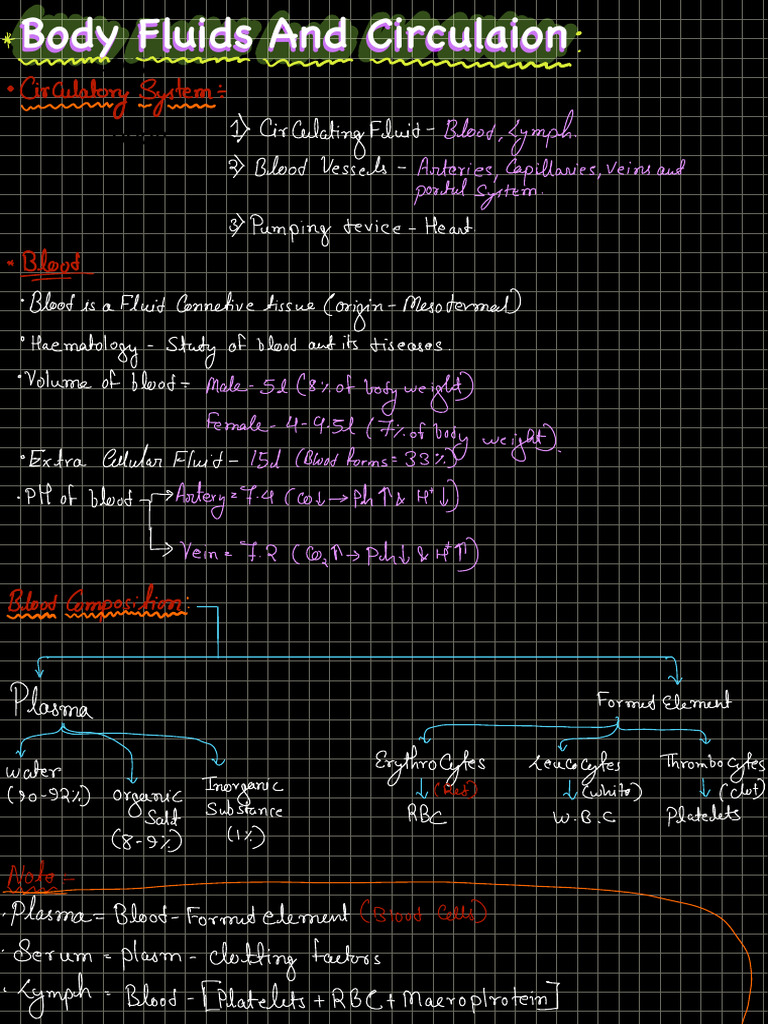 * Body Fluids And Circulaion:
• Circulatory System:-
1) Circulating Fluid - Blood, Lymph.
2) Blood Vessels - Arteries, Capillaries, Veins and
portal System.
3) Pumping device - Heart
* Blood
• Blood is a Fluid Connective tissue (origin - Mesodermal)
• Haematology - Study of blood and its diseases.
• Volume of blood = Male - 5l (8% of body weight)
Female - 4-4.5l (7% of body weight).
• Extra Cellular Fluid - 15l (Blood forms = 33%)
• PH of blood → Artery = 7.4 (CO↓ → Ph↑ & H⁺↓)
→ Vein = 7.2 (CO₂↑ → Ph↓ & H⁺↑)
Blood Composition:
Plasma Formed Element
water Organic Inorganic Erythrocytes Leucocytes Thrombocytes
(90-92%) Sald Substance (Red) (white) (clot)
(8-9%) (1%) RBC W.B.C Platelets
Note -
• Plasma = Blood - Formed element (Blood Cells)
• Serum = plasm - clotting factors
• Lymph = Blood - [Platelets + RBC + Macroplrotein]